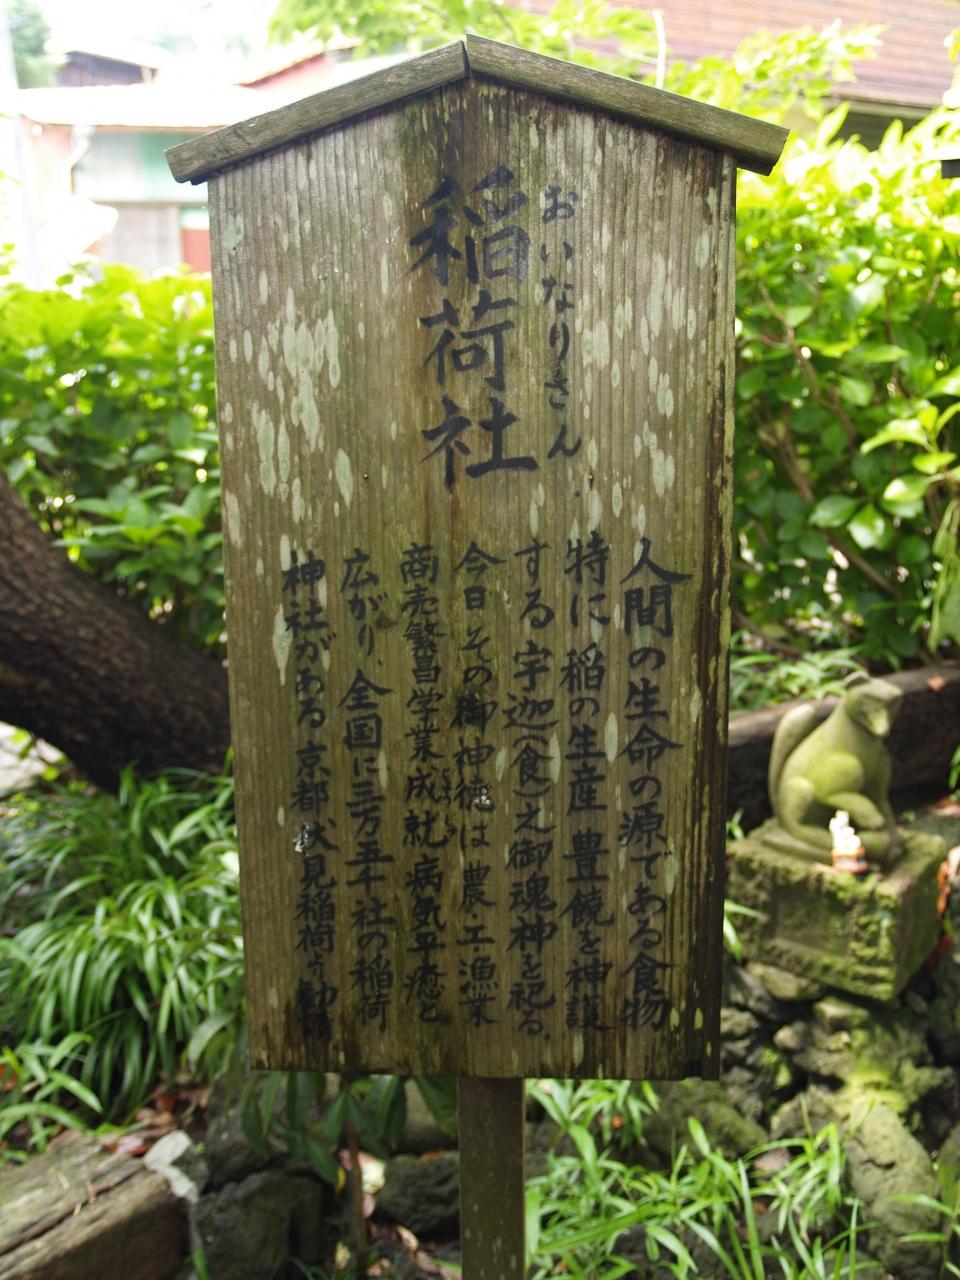 おいなりさん
稲荷社
人間の生命の源である食物
特に稲の生産豊饒を神護
する宇迦(食)之御魂神を祀る。
今日その御神徳は農・工漁業
商売繁昌学業成就病気平癒と
じょうじゅ
広がり、全国に三万五千社の稲荷
神社がある京都伏見稲荷より勧請